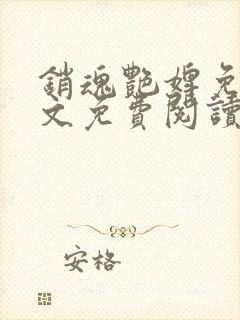 銷魂艷婢免
文免費閱讀
安格